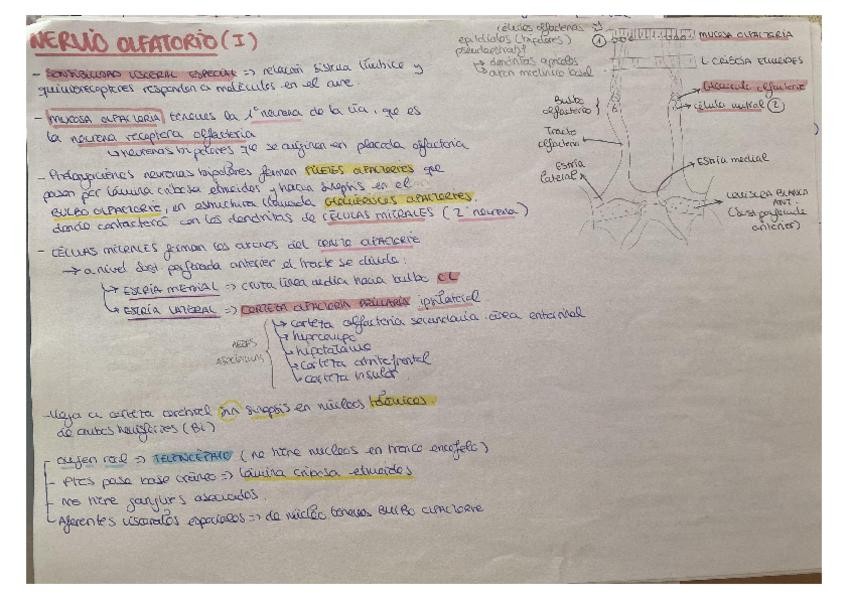 NERVIO OLFATORIO (I)
- SENSIBILIDAD VISCERAL ESPECIAL => relación sistema límbico y
quimiorreceptores responden a moléculas en el aire.
- MUCOSA OLFATORIA tenemos la 1ª neurona de la vía, que es
la neurona receptora olfatoria
↳ neuronas bipolares que se originan en placoda olfatoria
- Prolongaciones neuronas bipolares forman FILETES OLFATORIOS que
pasan por lámina cribosa etmoides y hacen sinapsis en el
BULBO OLFATORIO, en estructura llamada GLOMÉRULOS OLFATORIOS.
donde contactan con las dendritas de CÉLULAS MITRALES (2ª neurona)
- CÉLULAS MITRALES forman los axones del TRACTO OLFATORIO
→ a nivel sust perforada anterior el tracto se divide:
↳ ESTRÍA MEDIAL => cruza línea media hacia bulbo CL
↳ ESTRÍA LATERAL => CORTEZA OLFATORIA PRIMARIA ipsilateral
AREAS
ASOCIATIVAS
→ corteza olfatoria secundaria: área entorrinal
→ hipocampo
→ hipotálamo
→ corteza orbitofrontal
→ corteza insular
- Llega a corteza cerebral sin sinapsis en núcleos talámicos
de ambos hemisferios (BL)
- origen real => TELENCÉFALO (no tiene núcleos en tronco encéfalo)
- Ptos paso base cráneo => lámina cribosa etmoides
- no tiene ganglios asociados.
- Aferentes viscerales especiales => de núcleo BULBO OLFATORIO
células olfatorias
epiteliales (bipolares) ①
pseudoestratif
→ dendritas apicales
→ axon mielínico basal
MUCOSA OLFATORIA
L. CRIBOSA ETMOIDES
Glomérulo olfatorio
célula mitral ②
Bulbo
olfatorio
Tracto
olfatorio
Estría
lateral
Estría medial
COMISURA BLANCA
ANT.
(sust perforada
anterior)